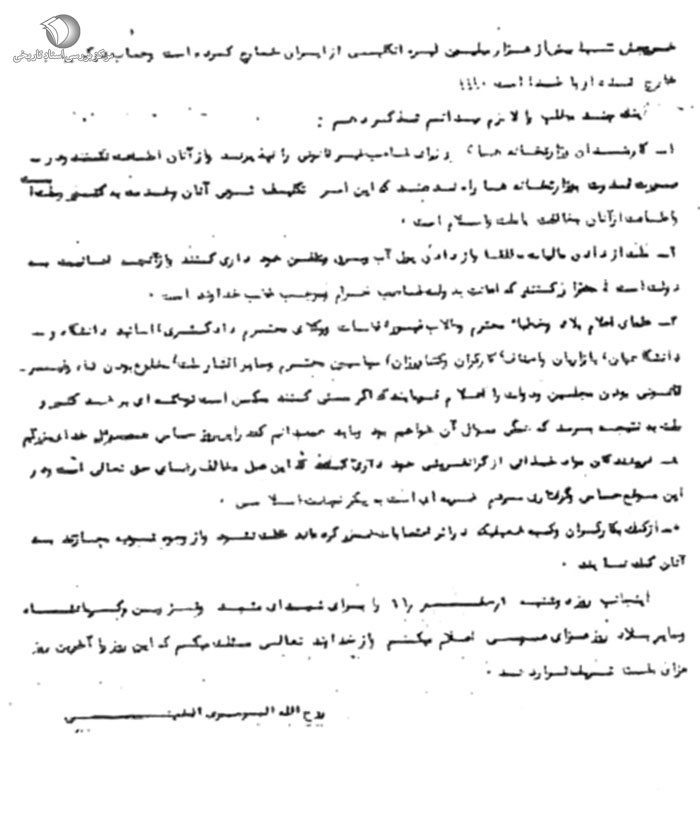 مرکز بررسی اسناد تاریخی
خویش تنها بیش از هزار میلیون لیره انگلیسی از ایران خارج کرده است وحساب دیگر
خارج شده او با خدا است !!!!
اینک چند مطلب را لازم میدانم تذکر دهم :
۱ـ کارمندان وزارتخانه ها، وزرای غاصب غیر قانونی را نپذیرند واز آنان اطاعت نکنند ودر
صورت قدرت بوزارتخانه ها راه ندهند که این امر تکلیف شرعی آنان وخدمت به کشور وملت است
واطاعت از آنان مخالفت با ملت واسلام است .
۲ـ ملت از دادن مالیات مطلقا واز دادن پول آب وبرق وتلفن خود داری کنند واز آنچه اعانت به
دولت است احتراز کنند که اعانت بدولت غاصب حرام وموجب غضب خداوند است .
۳ـ علمای اعلام بلاد وخطباء محترم وطلاب غیور، قضات ووکلای محترم دادگستری، اساتید دانشگاه و
دانشگاهیان، بازاریان واصناف، کارگران وکشاورزان، سیاسیین محترم وسایر اقشار ملت، مخلوع بودن شاه وغیر
قانونی بودن مجلسین ودولت را اعلام فرمایند که اگر سستی کنند ممکن است توطئه ای بر ضد کشور و
ملت به نتیجه برسد که همگی مسؤل آن خواهیم بود وباید بدانیم که امروز حساس مسئول خدای بزرگیم
فروشندگان مواد غذائی از گرانفروشی خود داری کنند که این عمل مخالف رضای حق تعالی است ودر
این موقع حساس وگرفتاری مردم ضربه ای است به پیکر نهضت اسلامی .
۵ـ از کمک بکارگران وکسبه ضعیفیکه در اثر اعتصابات ضرر کرده‌اند غفلت نشود واز وجوه شرعیه مجازند به
آنان کمک نمایند .
اینجانب روز دوشنبه ۱ رصفر ۱۱ را برای شهدای مشهد وقزوین وکرمانشاه
وسایر بلاد روز عزای عمومی اعلام میکنم واز خداوند تعالی مسئلت میکنم که این روز را آخرین روز
عزای ملت شریف قرار دهد .
روح الله الموسوی الخمینی